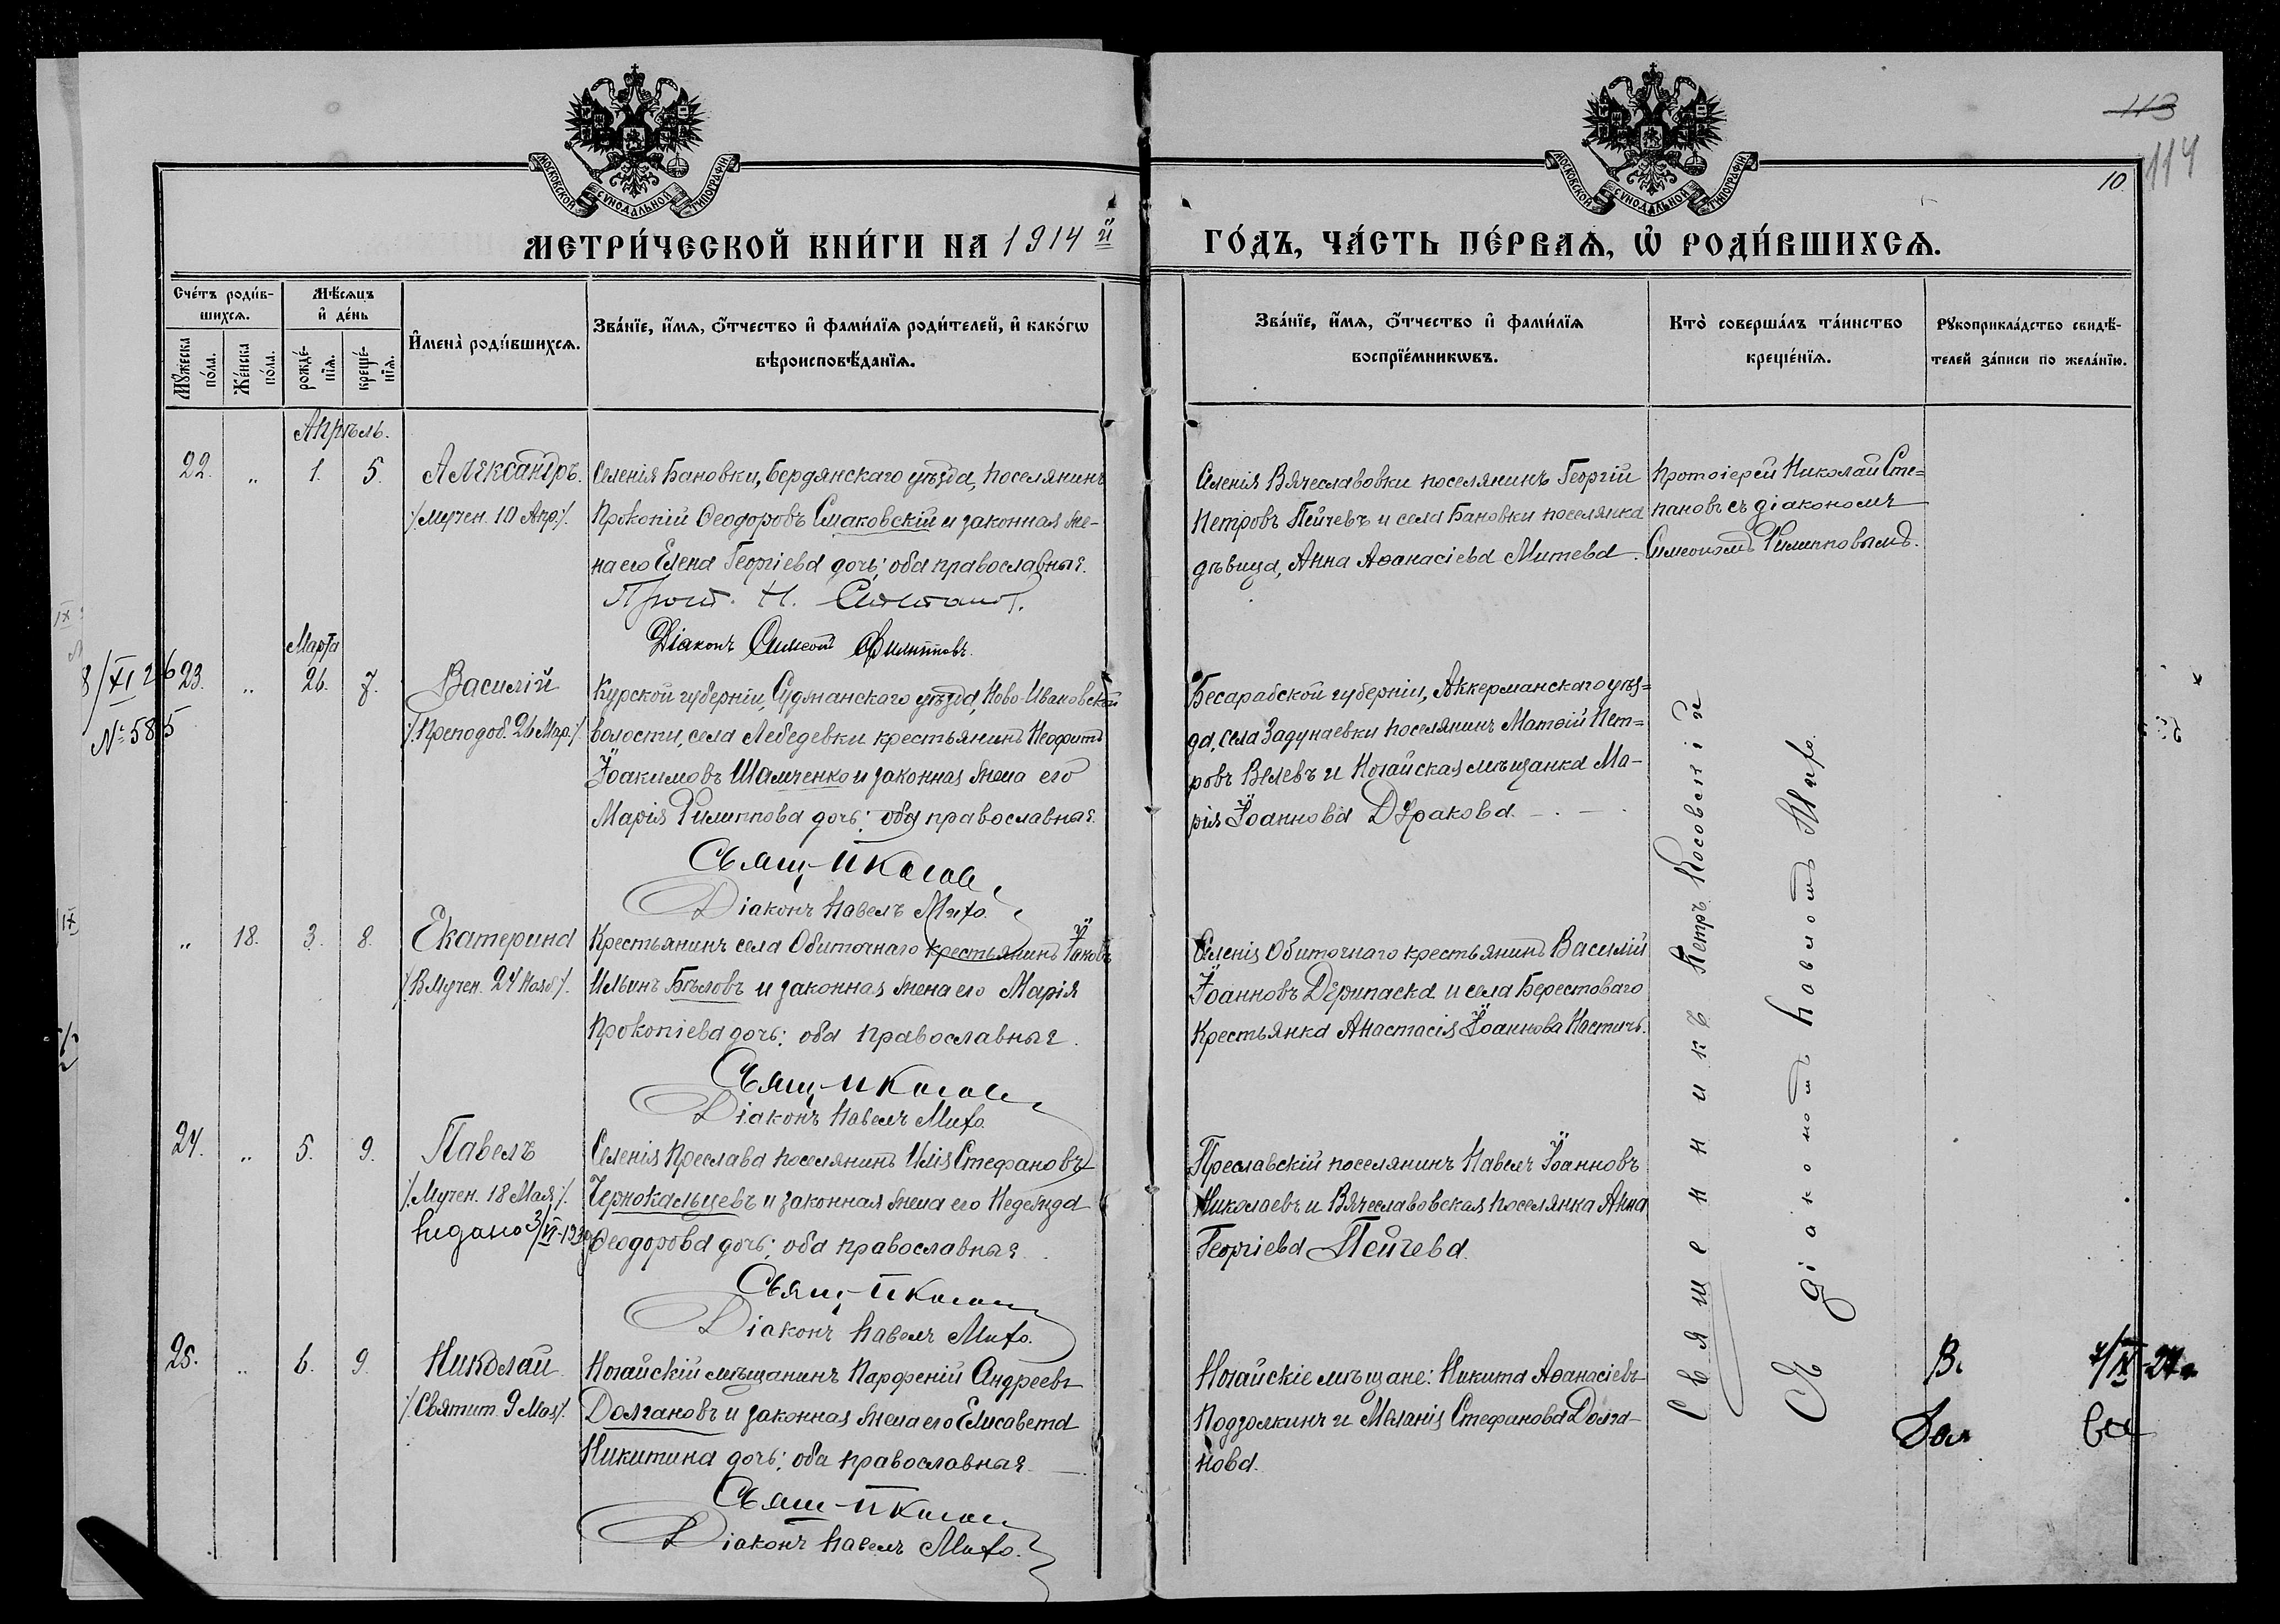 113
114
10
МОСКОВСКОЙ СѴНОДАЛЬНОЙ ТИПОГРАФІИ
МОСКОВСКОЙ СѴНОДАЛЬНОЙ ТИПОГРАФІИ
МЕТРИ́ЧЕСКОЙ КНИ́ГИ НА 1914 й
ГО́ДЪ, ЧА́СТЬ ПЕ́РВАѦ, Ѡ҆ РОДИ́ВШИХСѦ.
Сче́тъ роди́в-
шихсѧ.
Мѣ́сѧцъ
и҆ де́нь
Мꙋ́жеска
по́ла.
Же́нска
по́ла.
рожде́-
нїѧ.
креще́-
нїѧ.
И҆мена̀ роди́вшихсѧ.
Зва́нїе, и҆́мѧ, ѻ҆́тчество и҆ фами́лїѧ роди́телей, и҆ како́гѡ
вѣроисповѣ́данїѧ.
Зва́нїе, и҆́мѧ, ѻ҆́тчество и҆ фами́лїѧ
воспрїе́мникѡвъ.
Кто̀ соверша́лъ та́инство
креще́нїѧ.
Рꙋкоприкла́дство свидѣ́-
телей за́писи по жела́нїю.
Апрѣль.
22. „ 1. 5. Александръ.
/. Мучен. 10 Апр. /.
Селенія Бановки, Бердянскаго уѣзда, поселянинъ
Прокопій Ѳеодоровъ Смаковскій и законная же-
на его Елена Георгіева дочь; оба православные.
Прот. Н. Степанов.
Діаконъ Симеонъ Филипповъ.
Селенія Вячеславовки поселянинъ Георгій
Петровъ Пейчевъ и села Бановки поселянка
дѣвица, Анна Аѳанасіева Митева.
Протоіерей Николай Сте=
пановъ съ діакономъ
Симеономъ Филипповымъ.
8/XI 26
№ 585
Марта
23. „ 26. 7. Василій
/. Преподоб. 26 Мар. /.
Курской губерніи, Суджанскаго уѣзда, Ново-Ивановской
волости, села Лебедевки крестьянинъ Неофитъ
Іоакимовъ Шамченко и законная жена его
Марія Филиппова дочь; оба православные.
Свящ. П Косов
Діаконъ Павелъ Михо.
Бесарабской губерніи, Аккерманскаго уѣз=
да, села Задунаевки поселянинъ Матѳій Пет=
ровъ Велевъ и Ногайская мѣщанка Ма-
рія Іоаннова Дуракова.
„ 18. 3. 8. Екатерина
/. В Мучен. 24 Нояб. /.
Крестьянинъ села Обиточнаго крестьянинъ Іаковъ
Ильинъ Бѣловъ и законная жена его Марія
Прокопіева дочь; оба православные.
Свящ. П Косов
Діаконъ Павелъ Михо.
Селенія Обиточнаго крестьянинъ Василій
Іоанновъ Дерипаска и села Берестоваго
крестьянка Анастасія Іоаннова Настичъ.
24. „ 5. 9. Павелъ
/. Мучен. 18 Мая /.
Видано 3/VI-193
Селенія Преслава поселянинъ Илія Стефановъ
Чернокальцевъ и законная жена его Недежда
Ѳеодорова дочь; оба православные.
Свящ. П Косов
Діаконъ Павелъ Михо.
Преславскій поселянинъ Павелъ Іоанновъ
Николаевъ и Вячеславовская поселянка Анна
Георгіева Пейчева.
25. „ 6. 9. Николай
/. Святит. 9 Мая /.
Ногайскій мѣщанинъ Парфеній Андреевъ
Долгановъ и законная жена его Елисавета
Никитина дочь; оба православные.
Свящ. П Косов
Діаконъ Павелъ Михо.
Ногайскіе мѣщане: Никита Аѳанасіевъ
Подзолкинъ и Меланія Стефанова Долга-
нова.
Священникъ Петръ Косовскій
съ діакономъ Павломъ Михо.